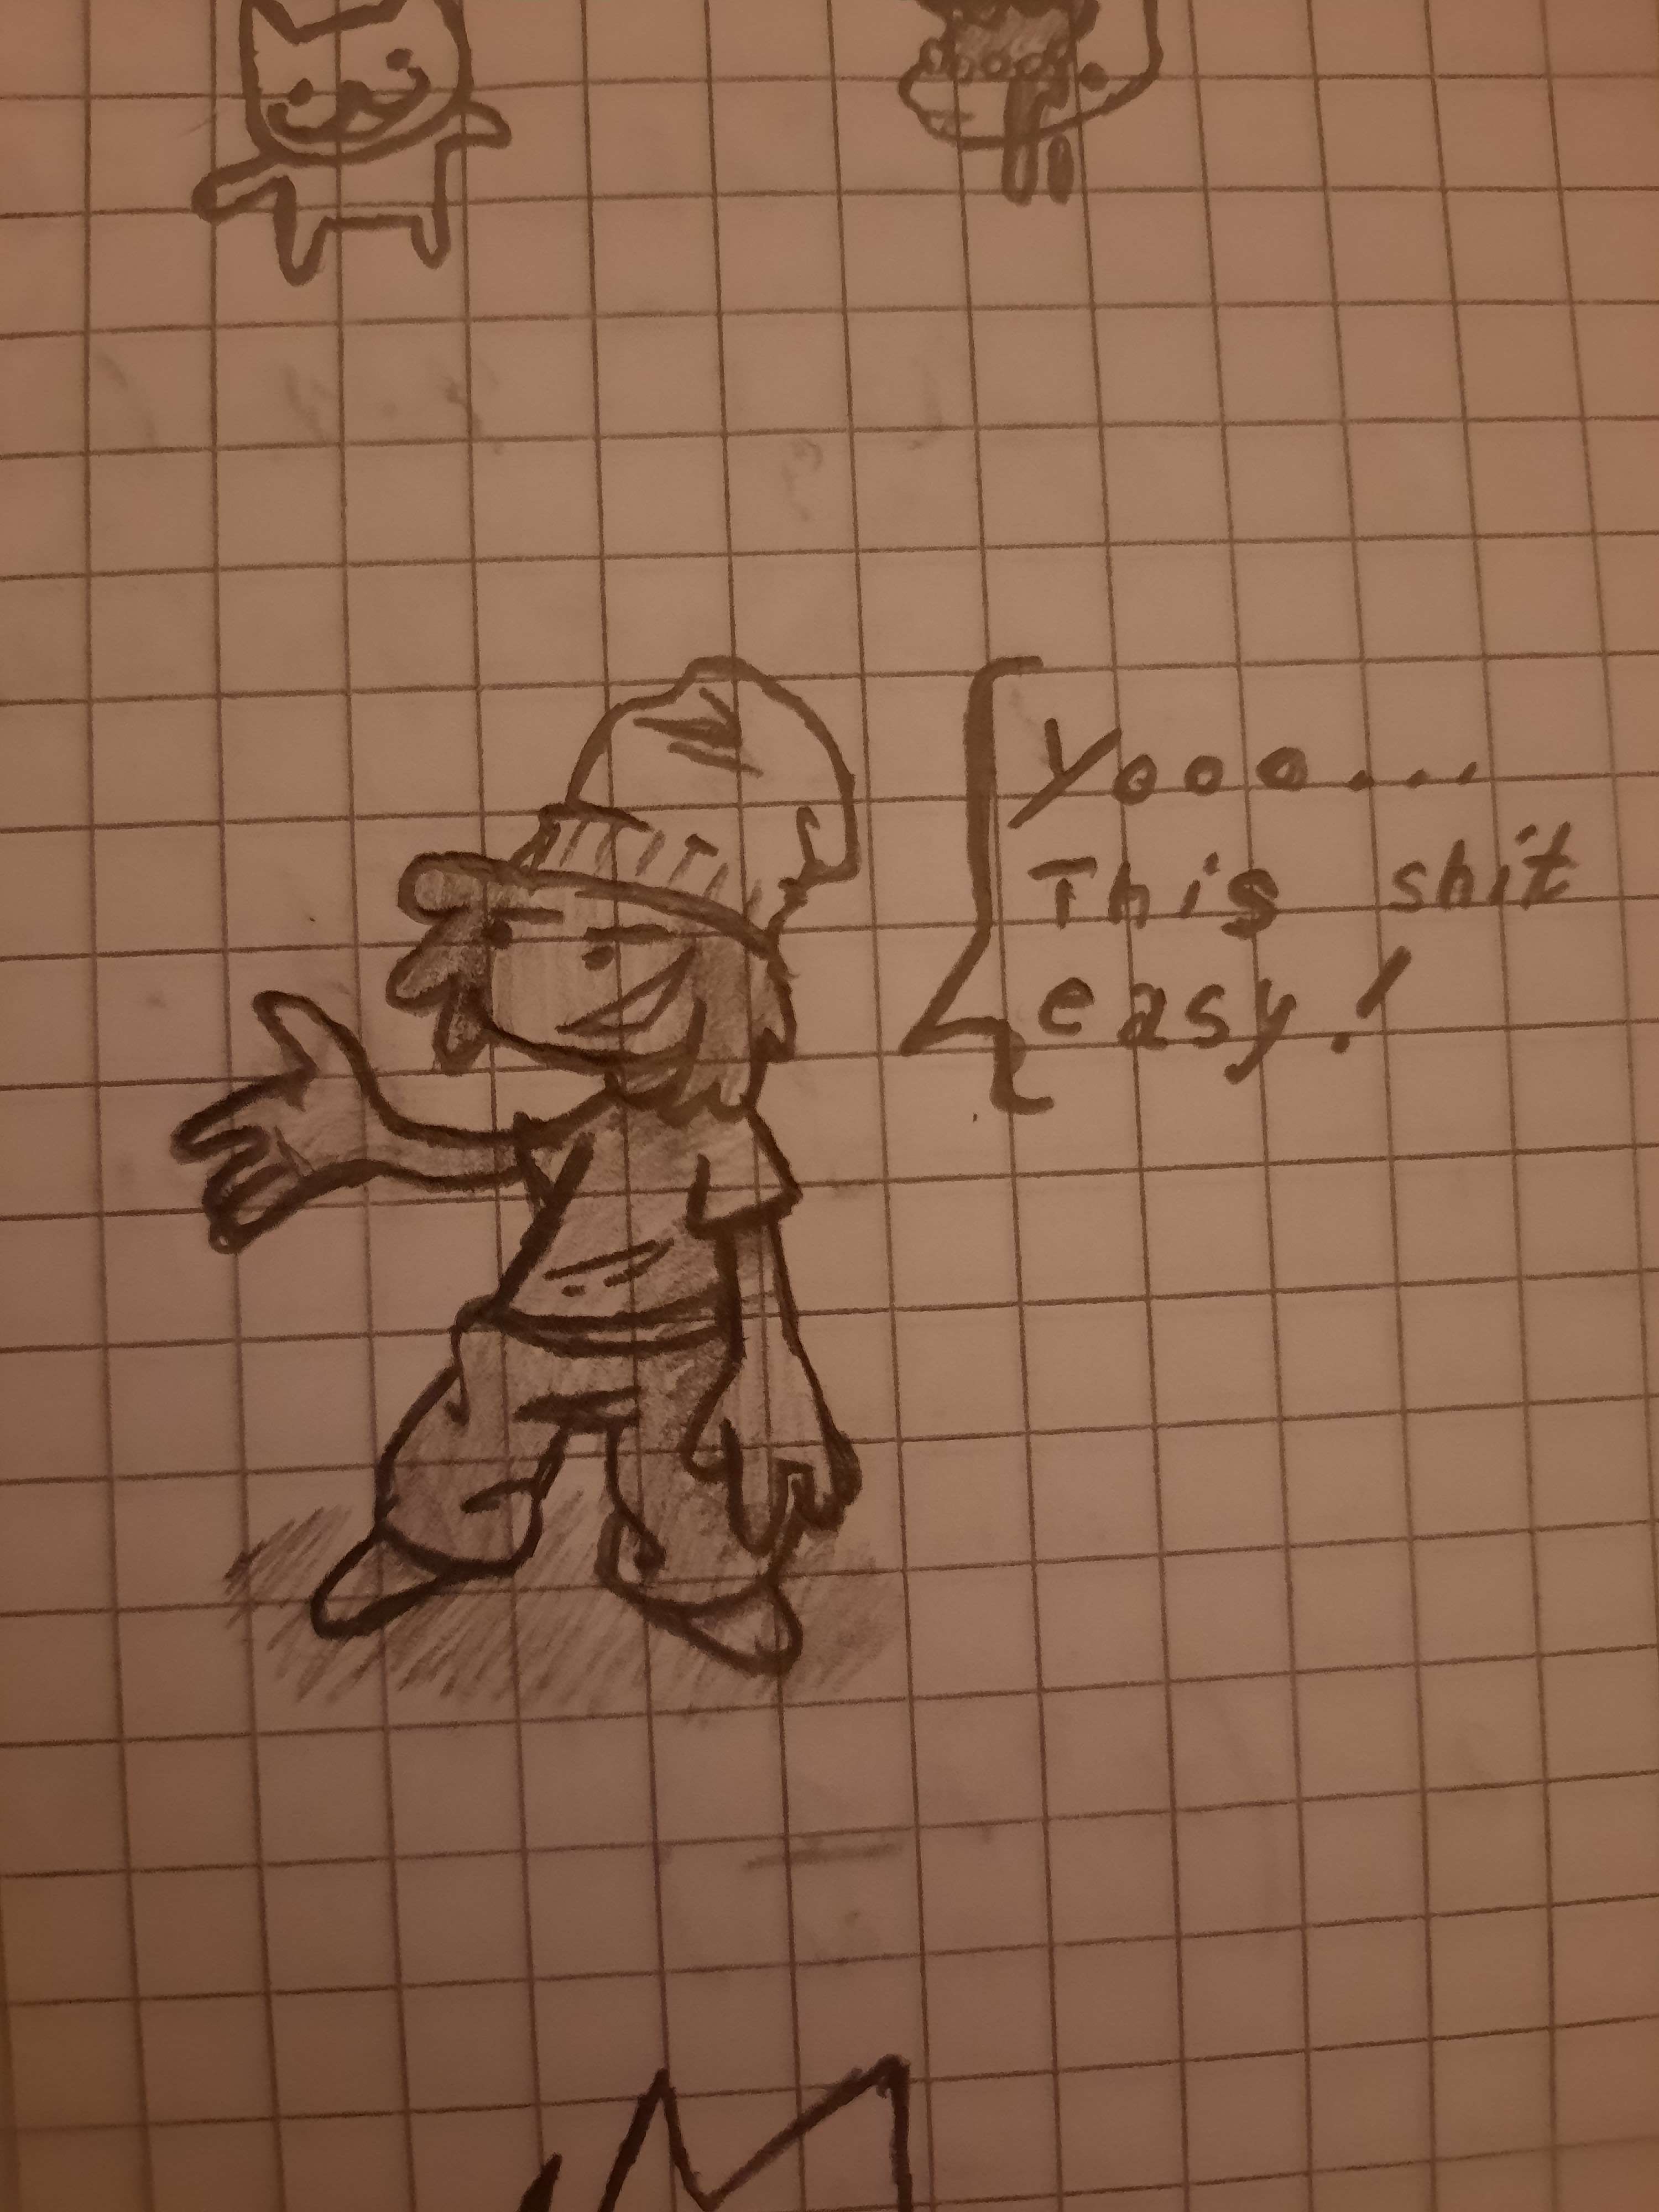 Yooo...
This shit
easy!